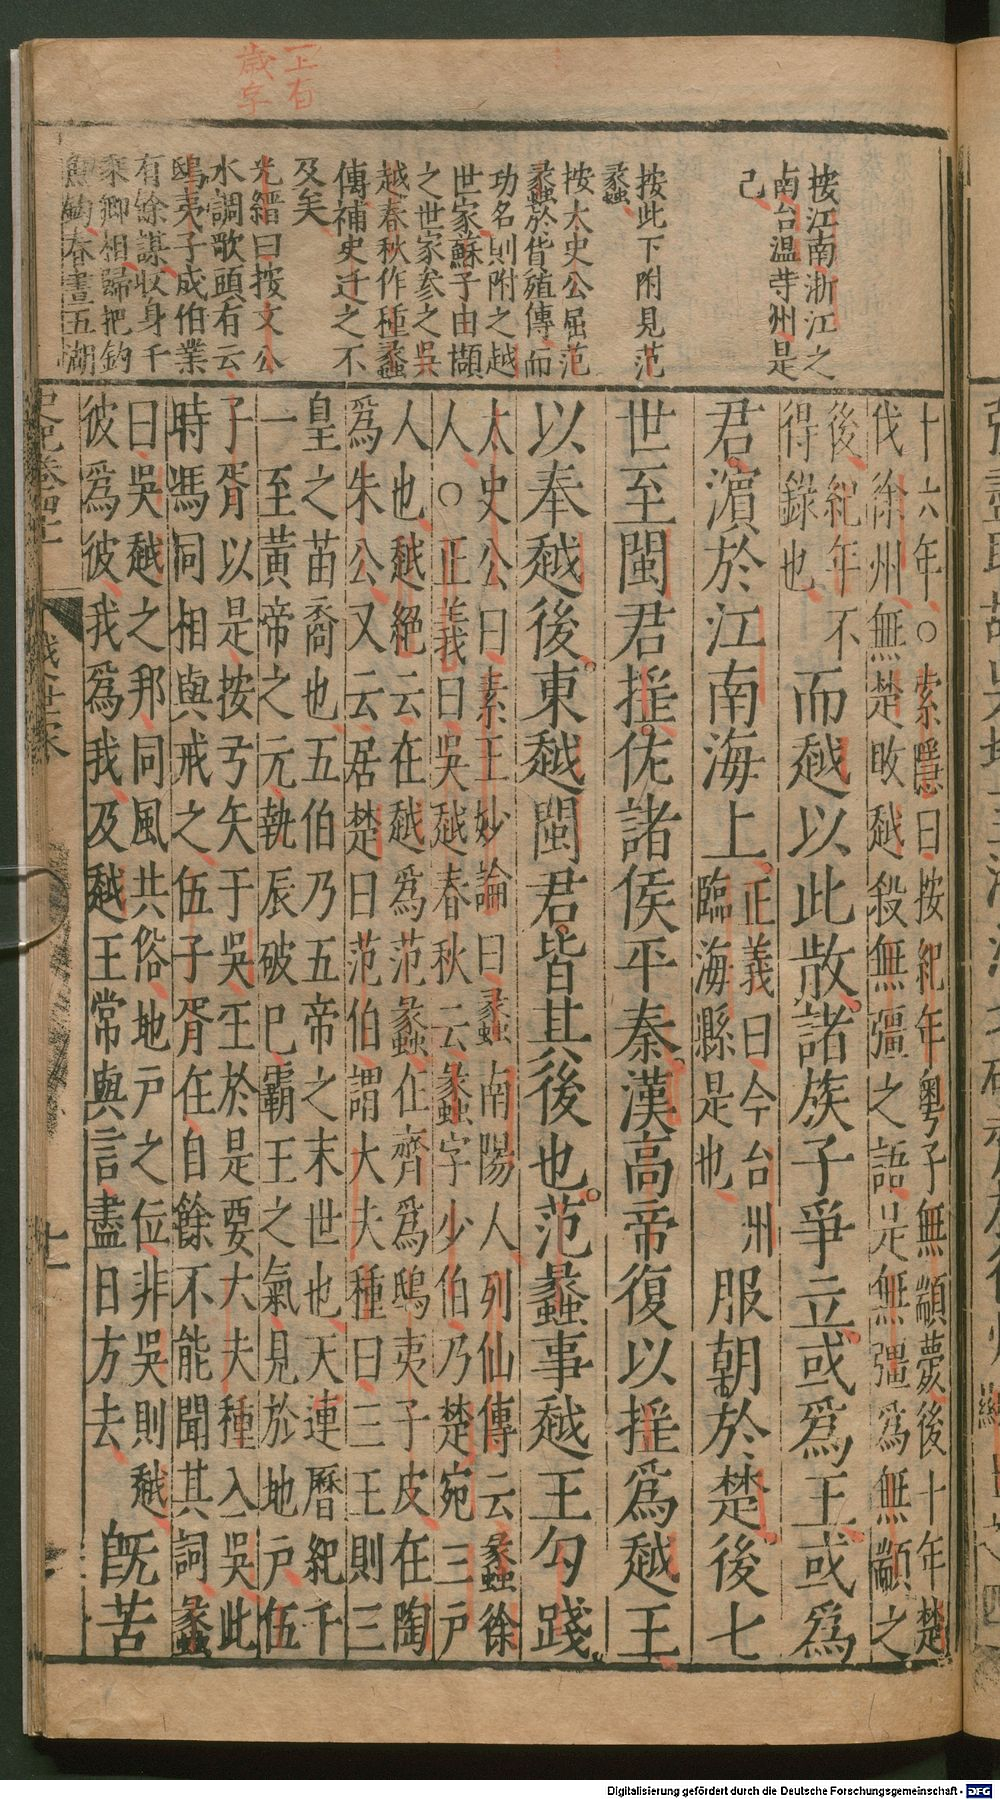 一正有
歲字
按江南浙江之
南台溫寺州是
己
按此下附見范
蠡
按太史公屈范
蠡於貨殖傳而
功名則附之越
世家蘇子由擷
之世家參之吳
越春秋作種蠡
傳補史迁之不
及矣
光縉曰按文公
水調歌頭有云
鴟夷子成伯業
有餘謀收身千
乘卿相歸把釣
魚鈎春晝五湖
十六年○索隱曰按紀年粵子無顓薨後十年楚
伐徐州無楚敗越殺無彊之語是無彊為無顓之
後紀年不
得錄也
而越以此散諸族子爭立或為王或為
君濵於江南海上
正義曰今台州
臨海縣是也
服朝於楚後七
世至閩君搖佐諸侯平秦漢高帝復以搖為越王
以奉越後東越閩君皆其後也范蠡事越王勾踐
太史公曰素王妙論曰蠡南陽人列仙傳云蠡徐
人○正義曰吳越春秋云蠡字少伯乃楚宛三戶
人也越絕云在越為范蠡在齊為鴟夷子皮在陶
為朱公又云居楚曰范伯謂大夫種曰三王則三
皇之苗裔也五伯乃五帝之末世也天連曆紀千
一至黃帝之元執辰破巳霸王之氣見於地戶伍
子胥以是按弓矢于吳王於是要大夫種入吳此
時馮同相與戒之伍子胥在自餘不能聞其詞蠡
曰吳越之邦同風共俗地戶之位非吳則越
彼為彼我為我及越王常與言盡日方去
既苦
史記卷四十一
越世家
十一
Digitalisierung gefördert durch die Deutsche Forschungsgemeinschaft - DFG